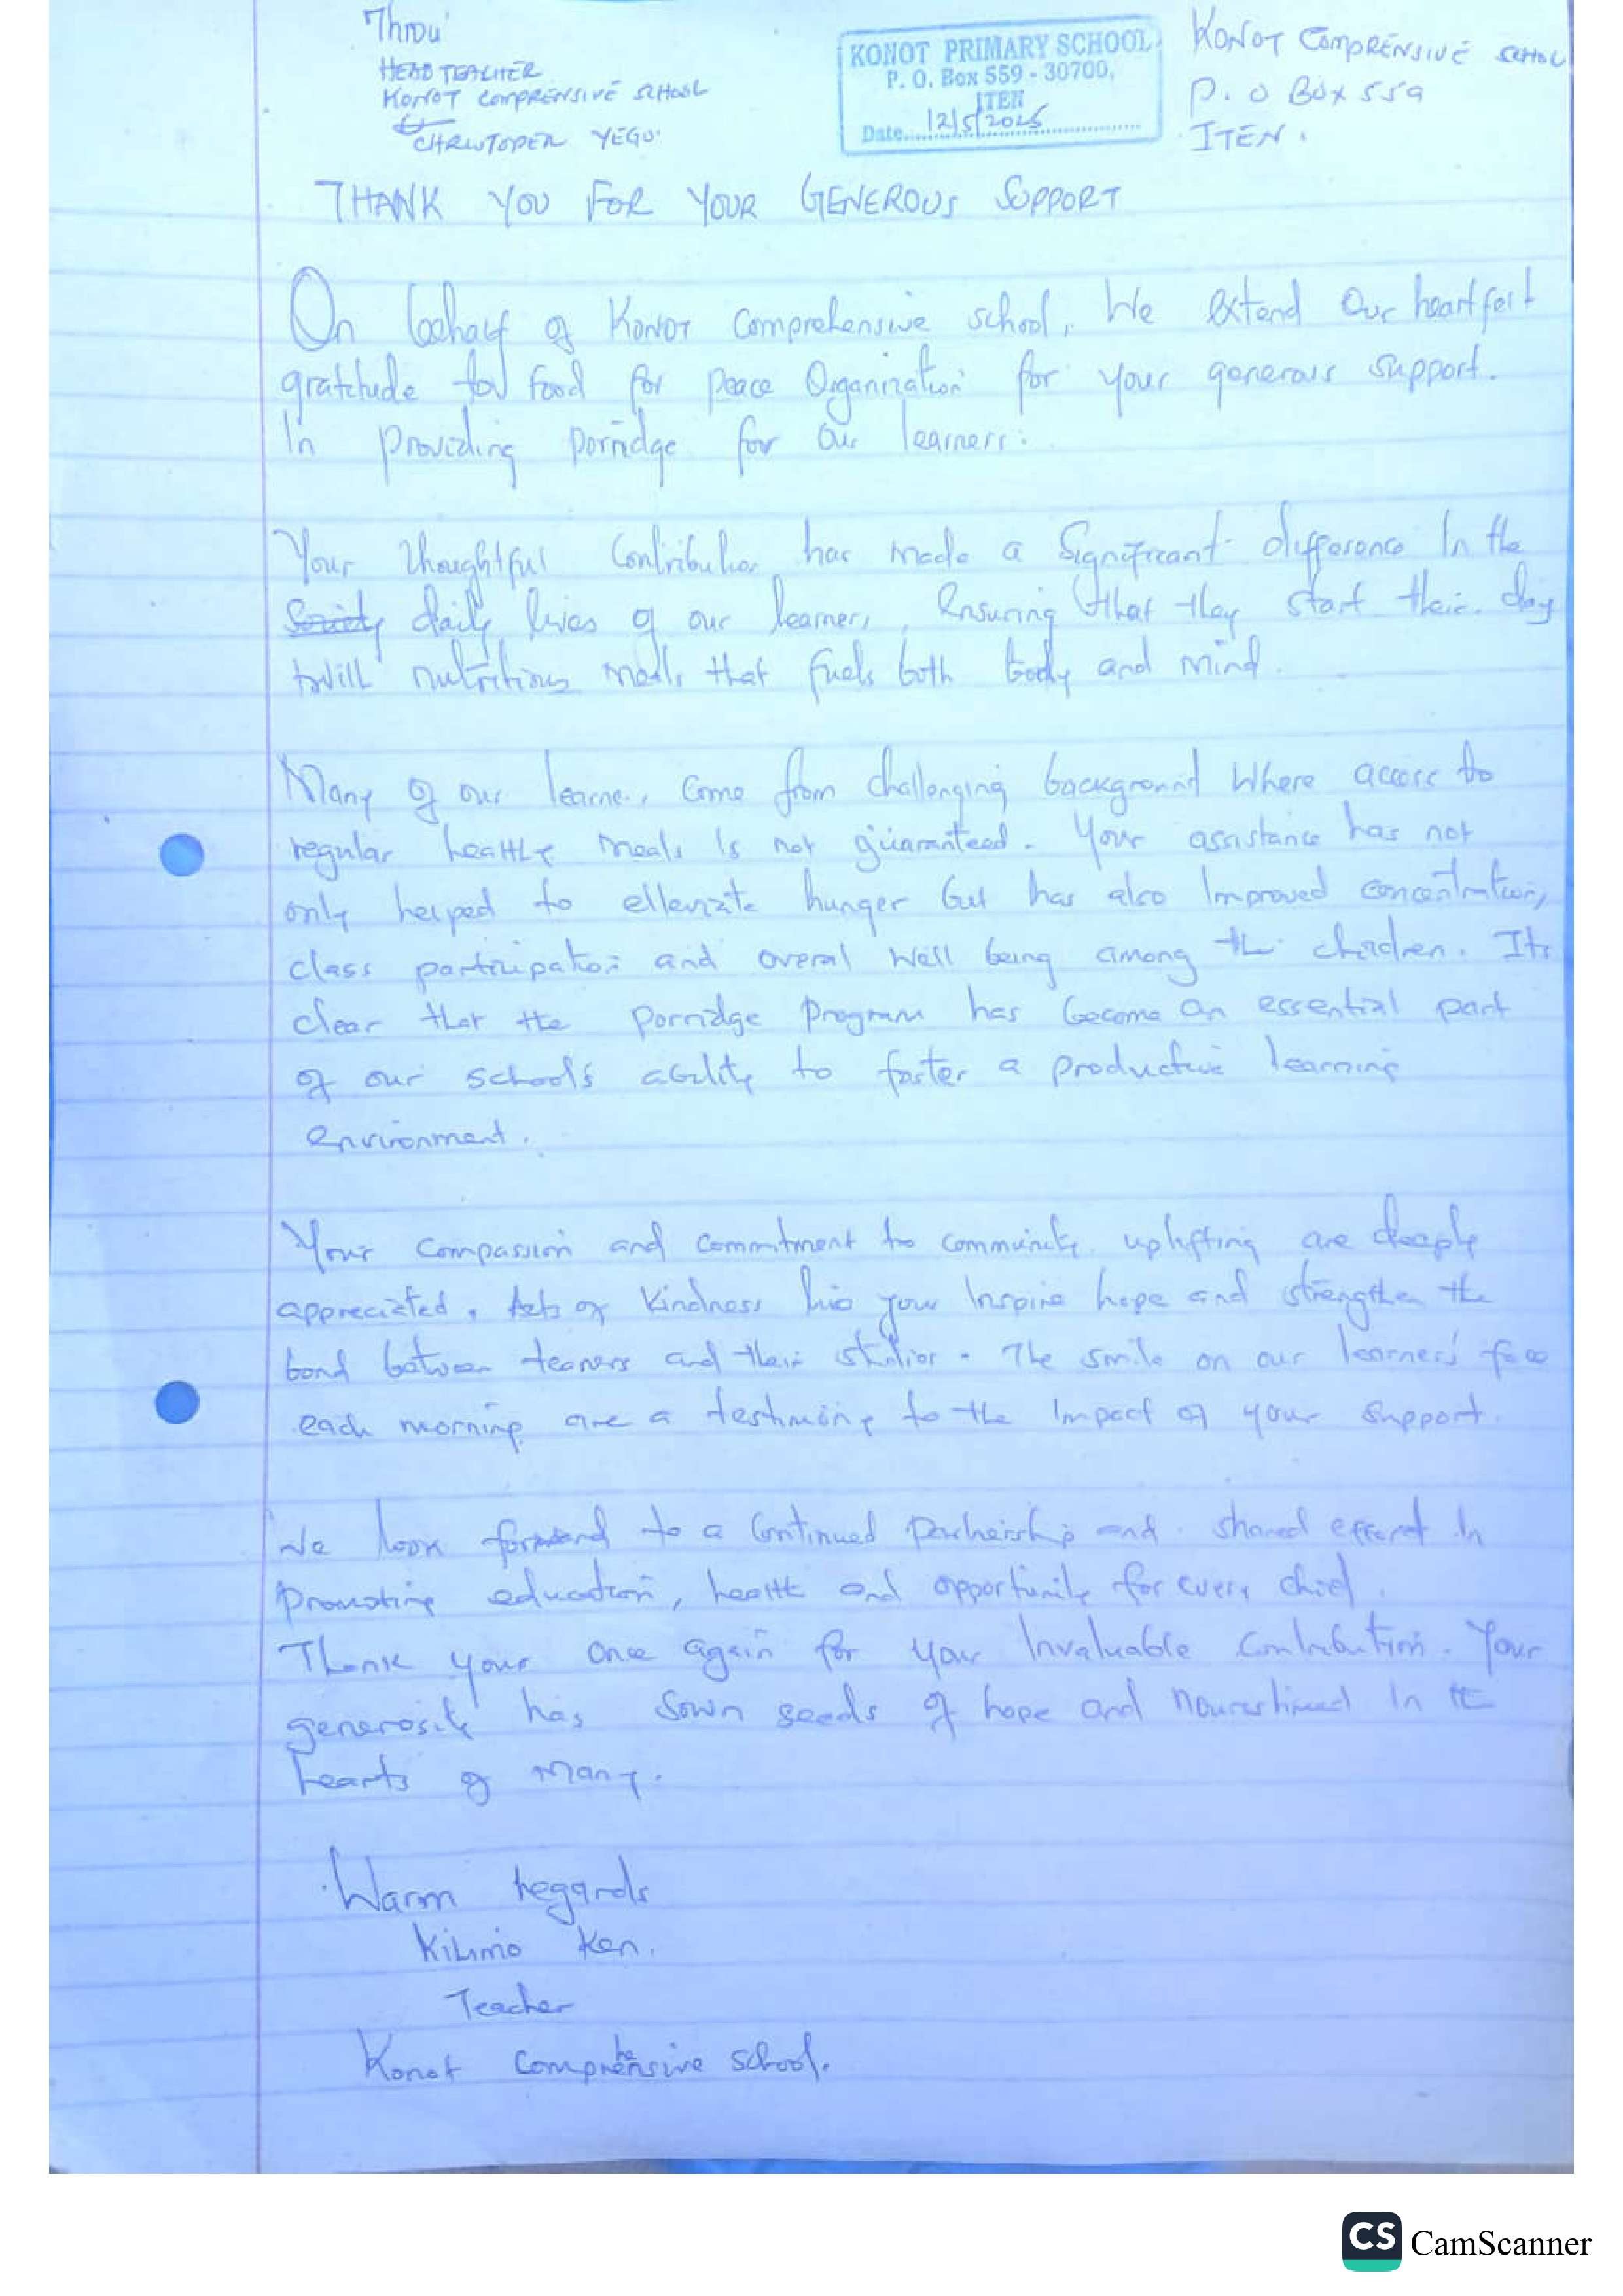 Throu'
HEAD TEACHER
KONOT COMPRENSIVE SCHOOL
CHRISTOPER YEGO.
KONOT PRIMARY SCHOOL
P. O. Box 559 - 30700,
ITEN
Date 12/5/2025
KONOT COMPRENSIVE SCHOOL
P. O BOX 559
ITEN.
THANK YOU FOR YOUR GENEROUS SUPPORT
On behalf of KONOT Comprehensive school, We extend our heartfelt
gratitude to Food for peace Organization for your generous support.
In providing porridge for our learners.
Your thoughtful contribution has made a significant difference In the
Society daily lives of our learners, ensuring that they start their day
will nutritious meals that fuels both body and mind.
Many of our learners come from challenging background where access to
regular healthy meals Is not guaranteed. Your assistance has not
only helped to elleviate hunger but has also Improved concentration,
class participation and overal well being among the children. Its
clear that the porridge program has become an essential part
of our school's ability to foster a productive learning
environment.
Your compassion and commitment to community uplifting are deeply
appreciated, Acts of kindness like your Inspire hope and strengthen the
bond between teaners and their . The smile on our learner's face
each morning are a testimony to the Impact of your support.
We look forward to a continued partnership and shared effort In
promoting education, health and opportunity for every child.
Thank your once again for your Invaluable contribution. Your
generosity has sown seeds of hope and nourishment In the
hearts of many.
Warm regards
Kilimo Ken.
Teacher
Konot comprehensive school.
CS CamScanner